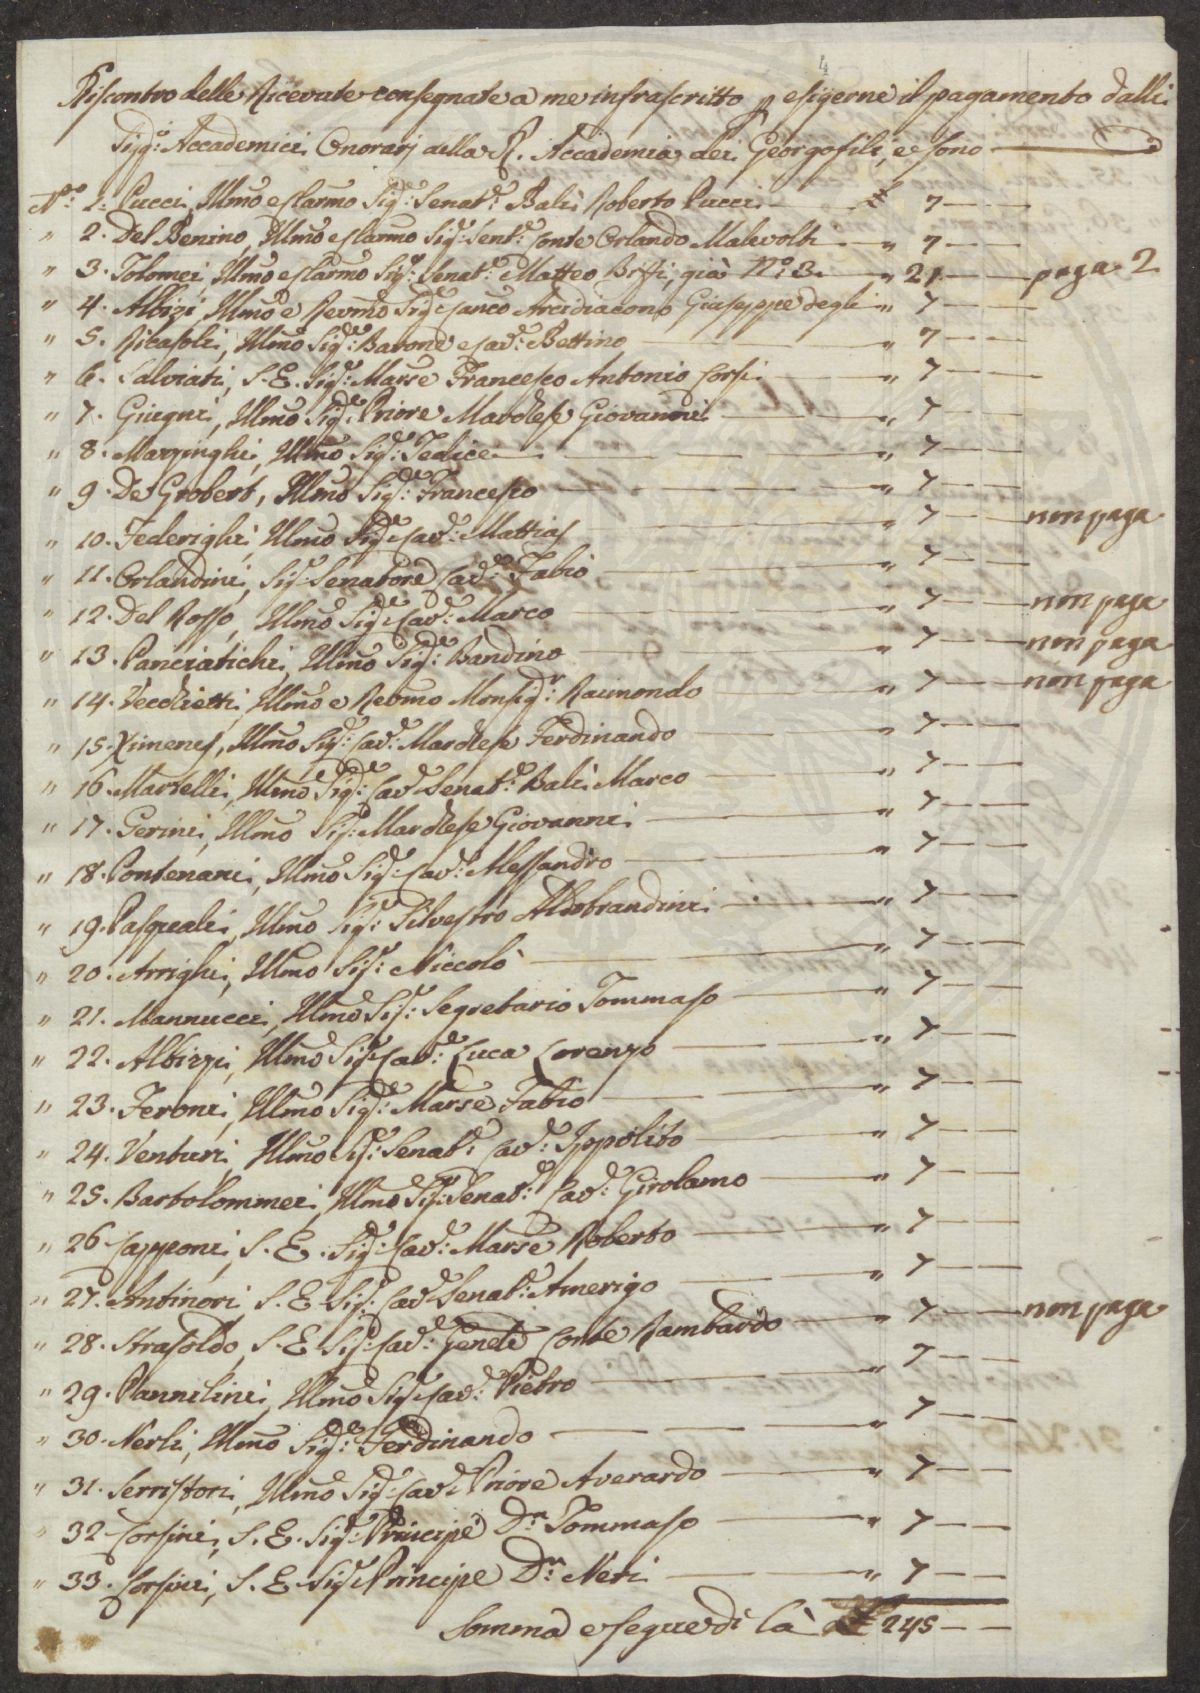 4
Riscontro delle Ricevute consegnate a me infrascritto p esigerne il pagamento dalli
Sigg:i Accademici Onorarj della R. Accademia dei Georgofili, e sono
N.o 1. Pucci, Illmo e Clarmo Sig.e Senat.e Balì Roberto Pucci — £ 7 — —
" 2. Del Benino, Illmo e Clarmo Sig.e Sent.e Conte Orlando Malevolti — " 7 — —
" 3. Tolomei Illmo e Clarmo Sig.e Senat.e Matteo Biffi, già N.o 3. — " 21 — — paga 2
" 4. Albizi Illmo e Revmo Sig.e Canco Arcidiacono Giuseppe degli " 7 — —
" 5. Ricasoli, Illmo Sig.e Barone e Cav.e Bettino — 7 — —
" 6. Salviati, S. E. Sig.e Marse Francesco Antonio Corsi — " 7 — —
" 7. Giugni, Illmo Sig.e Priore Marchese Giovanni — " 7 — —
" 8. Marzinghi, Illmo Sig.e Felice — " 7 — —
" 9. De Grobert, Illmo Sig.e Francesco — " 7 — —
" 10. Federighi, Illmo Sig.e Cav.e Mattias — " 7 — — non paga
" 11. Orlandini, Sig.e Senatore Cav.e Fabio — " 7 — —
" 12. Del Rosso, Illmo Sig.e Cav.e Marco — " 7 — — non paga
" 13. Panciatichi, Illmo Sig.e Bandino — " 7 — — non paga
" 14. Vecchietti, Illmo e Revmo Monsig.r Raimondo — " 7 — — non paga
" 15. Ximenes, Illmo Sig.e Cav.e Marchese Ferdinando — " 7 — —
" 16. Martelli, Illmo Sig.e Cav.e Senat.e Balì Marco — " 7 — —
" 17. Gerini, Illmo Sig.e Marchese Giovanni — " 7 — —
" 18. Pontenani, Illmo Sig.e Cav.e Alessandro — " 7 — —
" 19. Pasquali, Illmo Sig.e Silvestro Aldobrandini — " 7 — —
" 20. Arrighi, Illmo Sig.e Niccolò — " 7 — —
" 21. Mannucci, Illmo Sig.e Segretario Tommaso — " 7 — —
" 22. Albizzi, Illmo Sig.e Cav.e Luca Lorenzo — " 7 — —
" 23. Feroni, Illmo Sig.e Marse Fabio — " 7 — —
" 24. Venturi, Illmo Sig.e Senat.e Cav.e Ippolito — " 7 — —
" 25. Bartolommei, Illmo Sig.e Senat.e Cav.e Girolamo — " 7 — —
" 26 Capponi, S. E. Sig.e Cav.e Marse Roberto — " 7 — —
" 27. Antinori S. E. Sig.e Cav.e Senat.e Amerigo — " 7 — —
" 28. Strasoldo, S. E. Sig.e Cav.e Genele Conte Rambardo — " 7 — — non paga
" 29. Pannilini, Illmo Sig.e Cav.e Pietro — 7 — —
" 30. Nerli, Illmo Sig.e Ferdinando — " 7 — —
" 31. Serristori, Illmo Sig.e Cav.e Priore Averardo — " 7 — —
" 32 Corsini, S. E. Sig.e Principe D.n Tommaso — " 7 — —
" 33. Corsini, S. E. Sig.e Principe D.n Neri — " 7 — —
Somma e segue di là £ 245 — —